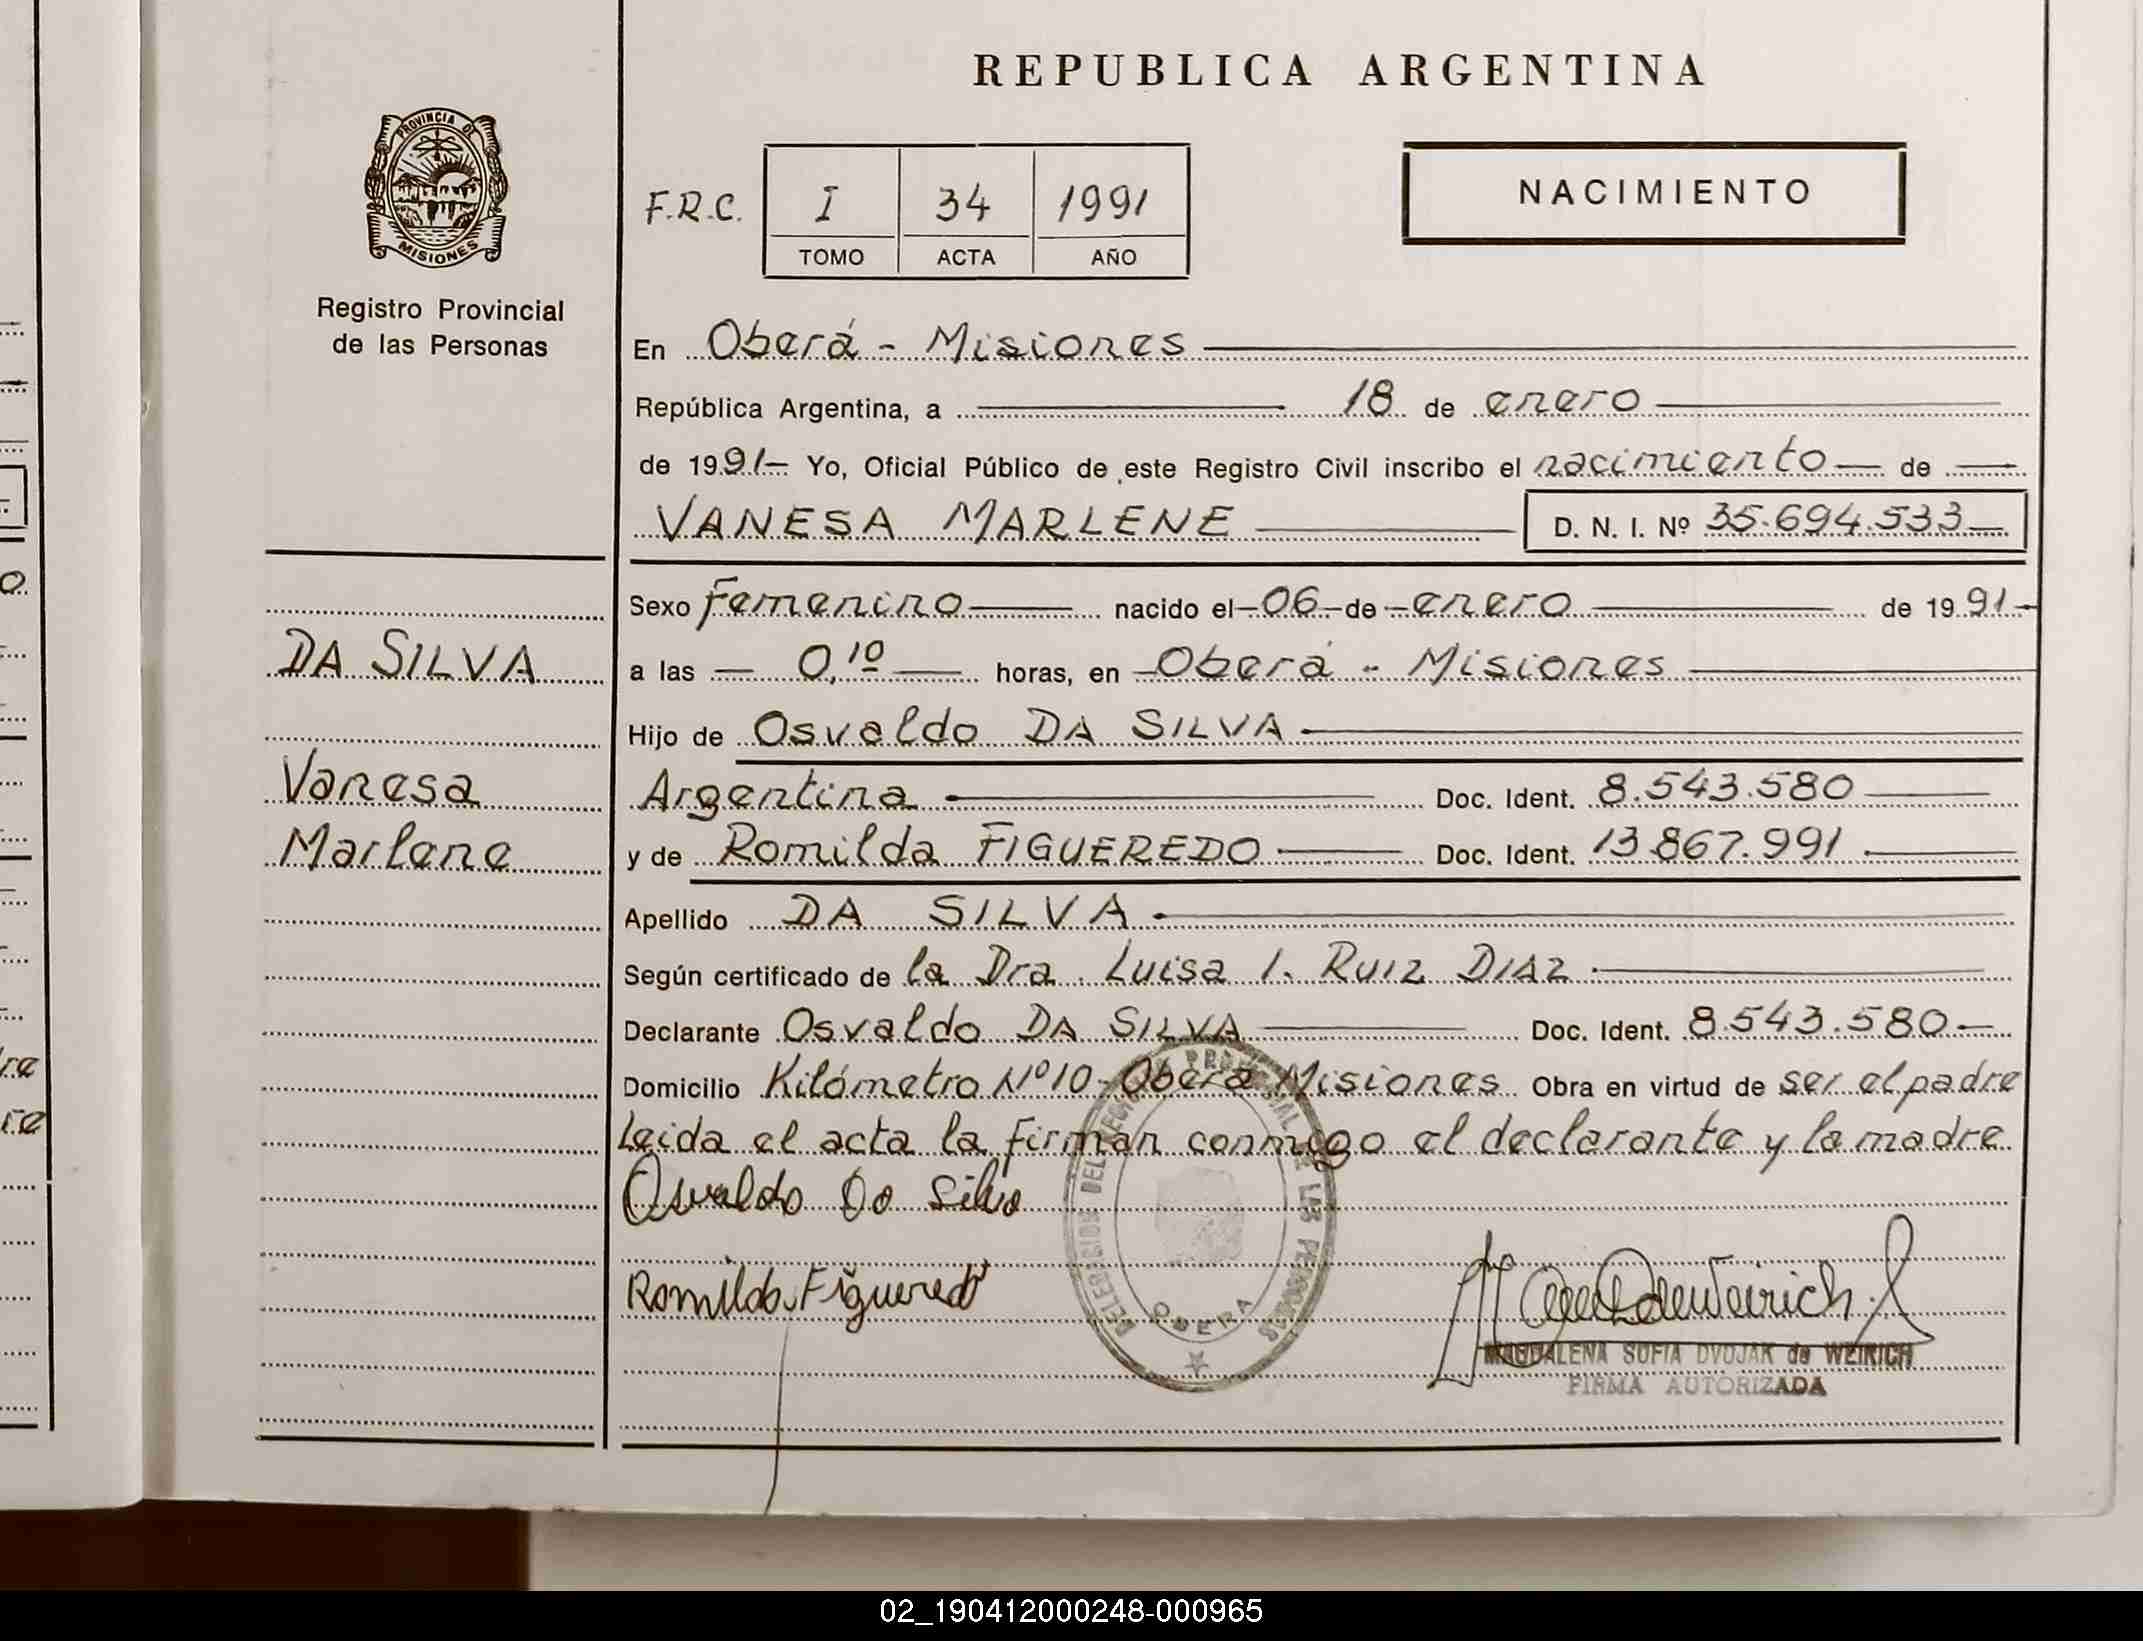 REPUBLICA ARGENTINA
PROVINCIA DE
MISIONES
Registro Provincial
de las Personas
F.R.C. I 34 1991
TOMO ACTA AÑO
NACIMIENTO
En Oberá - Misiones
República Argentina, a 18 de enero
de 1991 - Yo, Oficial Público de este Registro Civil inscribo el nacimiento - de
VANESA MARLENE D. N. I. Nº 35.694.533
Sexo femenino nacido el 06 de enero de 1991
DA SILVA
a las 0,10 horas, en Oberá - Misiones
Hijo de Osvaldo DA SILVA
Vanesa
Argentina Doc. Ident. 8.543.580
Marlene
y de Romilda FIGUEREDO Doc. Ident. 13.867.991
Apellido DA SILVA
Según certificado de la Dra. Luisa I. RUIZ DIAZ
Declarante Osvaldo DA SILVA Doc. Ident. 8.543.580
Domicilio Kilómetro Nº10 - Oberá Misiones Obra en virtud de ser el padre
Leida el acta la firman conmigo el declarante y la madre.
Osvaldo Da Silva
Romilda Figueredo
OBERA
MAGDALENA SOFIA DVOJAK de WEIRICH
FIRMA AUTORIZADA
02_190412000248-000965